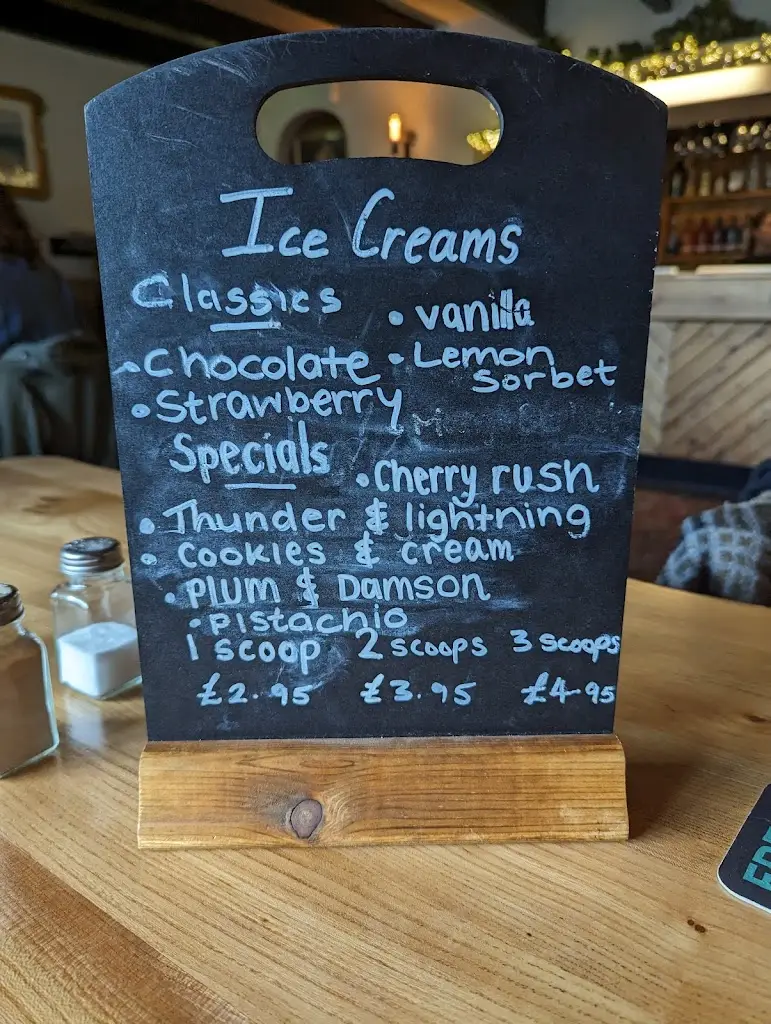 Ice Creams
Classics
• vanilla
- Chocolate
- Lemon
Sorbet
• Strawberry
Specials
• Cherry rush
• Thunder & lightning
• cookies & cream
• PLUM & DAMSON
• Pistachio
1 scoop 2 scoops 3 scoops
£2.95 £3.95 £4-95